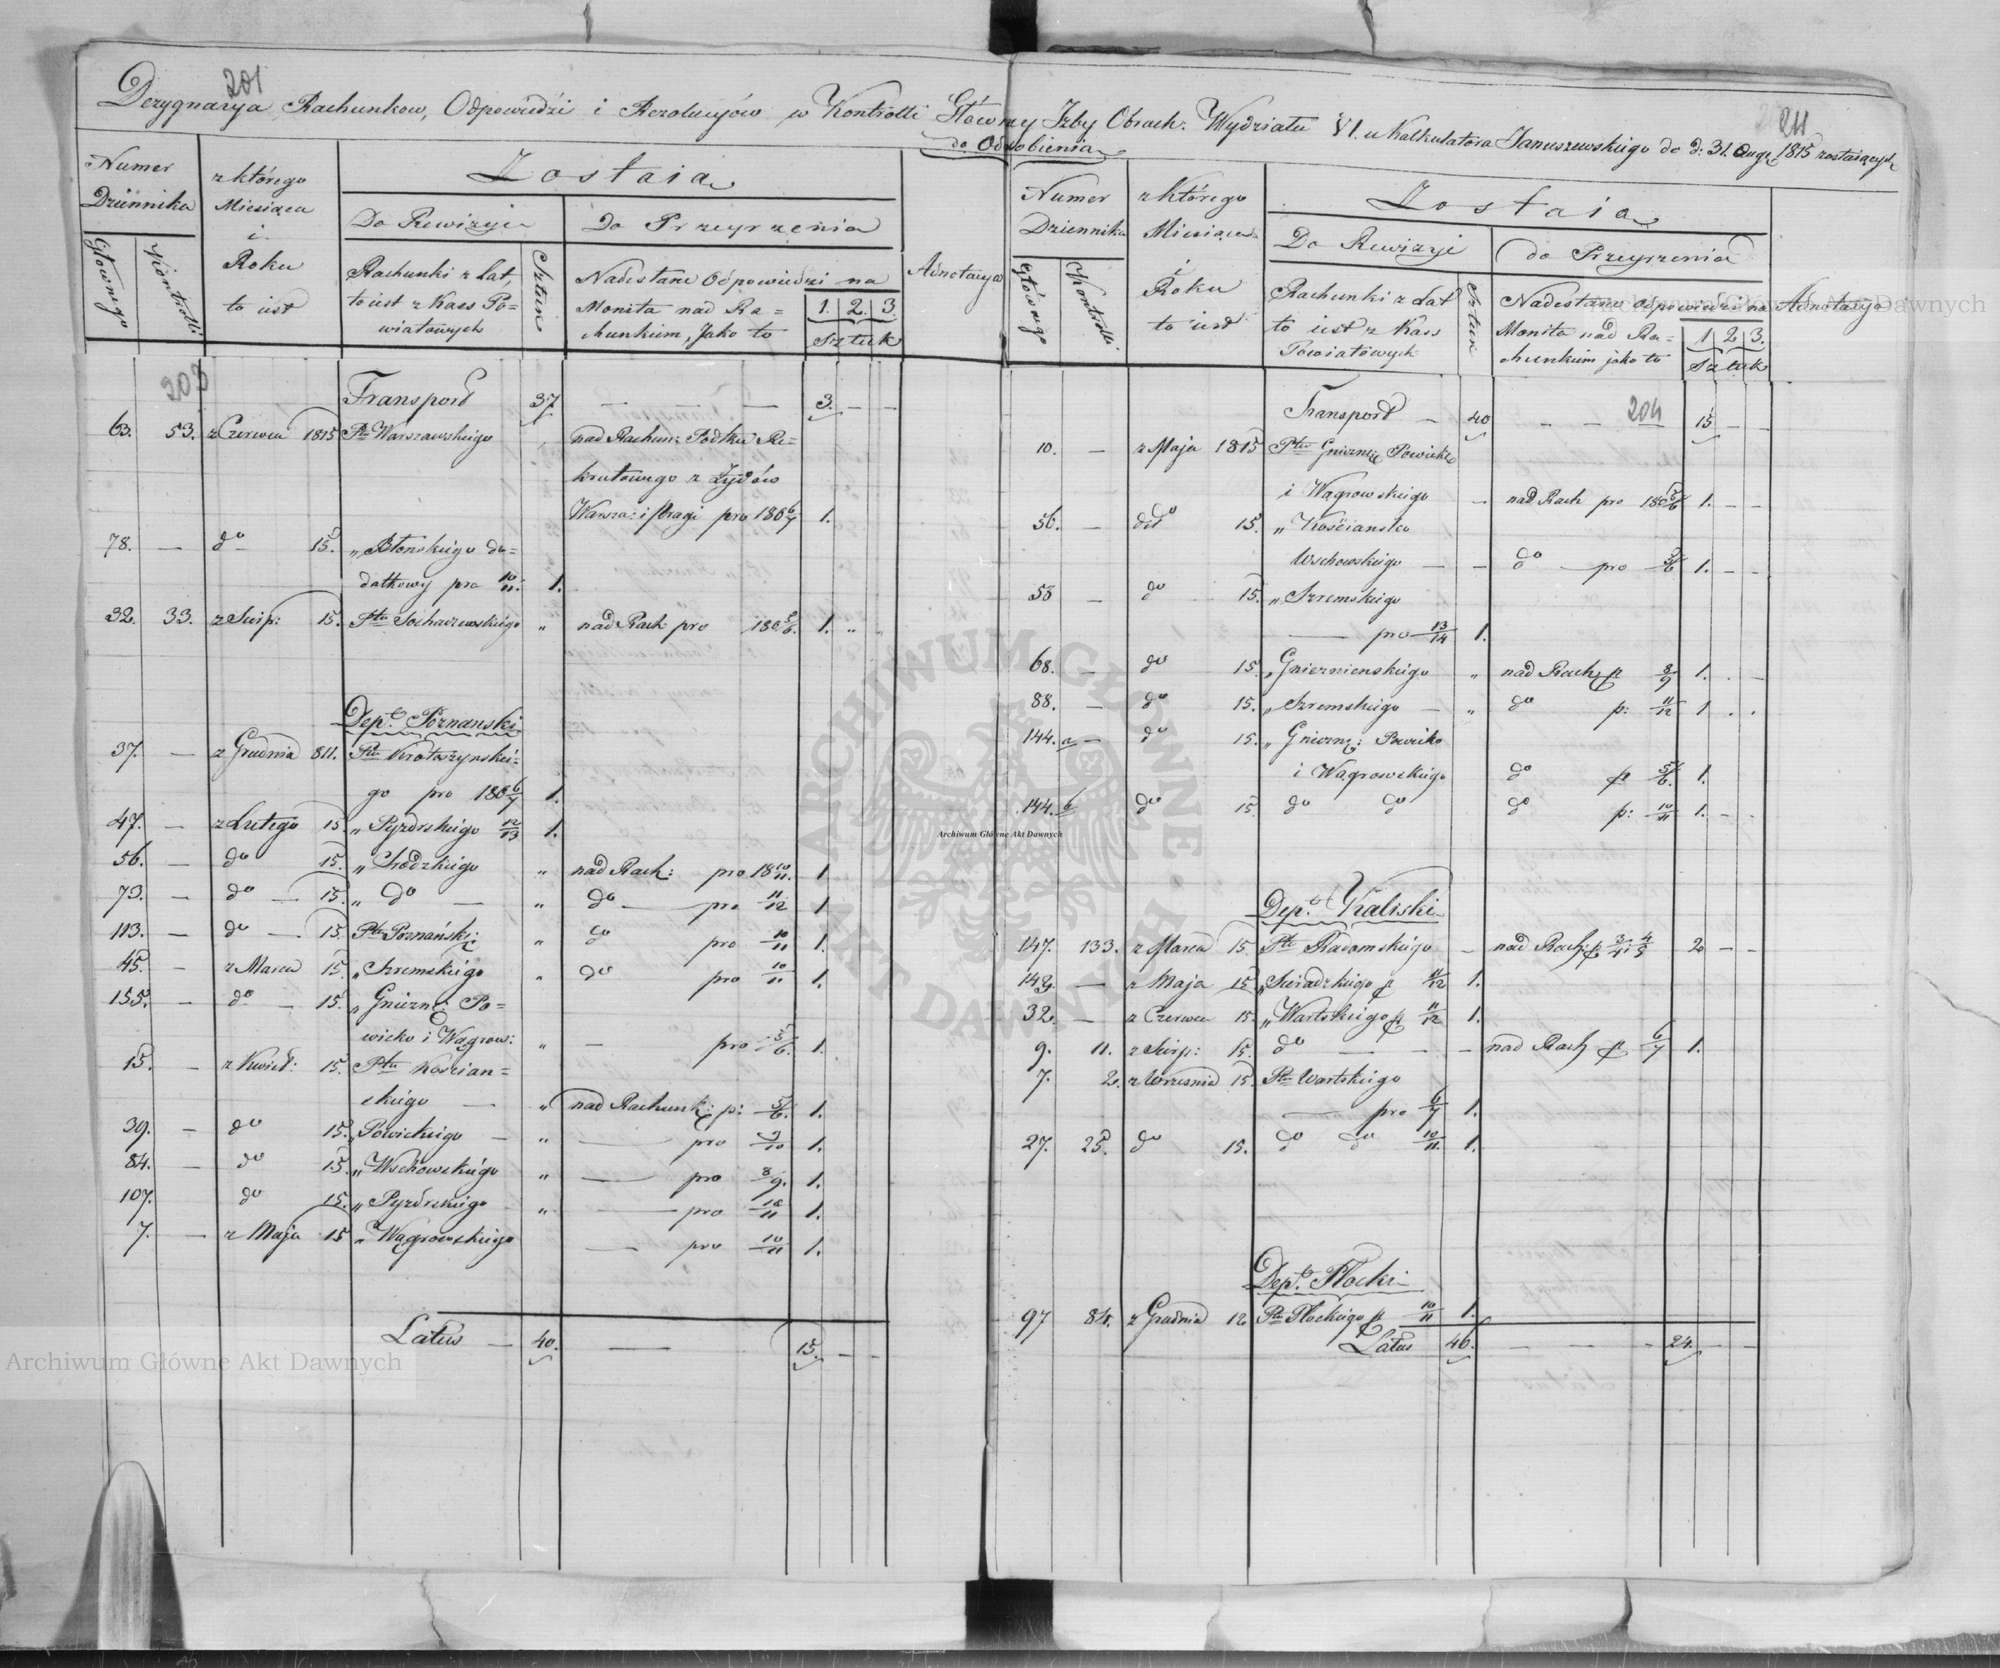 201
Dezygnacya Rachunkow, Odpowiedzi i Rezolucyów w Kontrolli Głowney Izby Obrach: Wydziału VI. u Kalkulatora Januszewskiego do d: 31. 1815 zostaiących
do Odrobienia
211
Numer Dziennika
z którego Miesiąca i Roku to iest
Zostaia
Do Rewizyi
Do Przeyrzenia
Głownego
Kontrolli
Rachunki z Lat, to iest z Kass Powiatowych
Sztuk
Nadesłane Odpowiedzi na Monita nad Rachunkiem, Jako to
1. 2. 3.
Sztuk
Adnotacya
203
Transport 37 — — — 3. — —
63. 53. z Czerwca 1815 Ptu Warszawskiego nad Rachun: Podtku Re=
krutowego z Żydów
Warsza: i Pragi pro 180 6/7 1.
78. — do 15. „ Błonskiego do=
datkowy pro 10/11. 1.
32. 33. z Sierp: 15. Ptu Sochaczewskiego „ nad Rach pro 180 5/6. 1. „ „
Dept. Poznanski
37. — z Grudnia 811. Ptu Krotoszynskie=
go pro 180 6/7 1.
47. — z Lutego 15. „ Pyzdrskiego 12/13 1.
56. — do 15. „ Srodzkiego „ nad Rach: pro 18 10/11. 1
73. — do — 15. „ do — „ do — pro 11/12 1
113. — do — 15. Ptu Poznański: „ do pro 10/11 1.
45. — z Marca 15. „ Szremskiego „ do pro 10/11 1.
155. — do — 15. „ Gniezn: Po=
wicko i Wągrow: „ — pro 5/6. 1.
15. — z Kwiet: 15. Ptu Koscian=
skiego — „ nad Rachunk: p: 5/6. 1.
39. — do 15. „ Powickiego — „ — pro 9/10 1.
84. — do 15. „ Wschowskiego „ — pro 8/9. 1.
107. do 15. „ Pyzdrskiego „ — pro 10/11 1.
7. — z Maja 15 „ Wągrowskiego — pro 10/11 1.
Latus — 40. — 15. — —
Numer Dziennika
z którego Miesiąca i Roku to iest
Zostaia
Do Rewizyi
do Przeyrzenia
Główneg
Kontrolli
Rachunki z Lat to iest z Kass Powiatowych
Sztuk
Nadesłane odpowiedzi na Monita nad Rachunkiem jako to
1 2 3.
Sztuk
Adnotacya
204
Transport — 40 — — 15 — —
10. — z Maja 1815 Ptu Gniezn: Powicko
i Wągrowskiego — nad Rach pro 180 5/6 1. — —
56. — do 15. „ Kościansko
Wschowskiego — — do — pro 5/6 1. — —
58 — do 15. „ Szremskiego
— pro 13/14 1.
68. — do 15. „ Gnieznienskiego „ nad Rach p 8/9 1. . —
88. — do 15. „ Szremskiego — „ do p: 11/12 1 . .
144. a — do 15. „ Gniezn: Powicko
i Wągrowskiego do p 5/6. 1.
144. b do 15. do do do p: 10/11 1. . —
Dept. Kaliski
147. 133. z Marca 15. Ptu Radomskiego — nad Rach: p 3/4 4/5 2 — —
149. — z Maja 15 „ Sieradzkiego p 11/12 1.
32. — z Czerwca 15. „ Wartskiego p 11/12 1.
9. 11. z Sierp: 15. do — — — nad Rach p 6/7 1.
7. 2. z Wrzesnia 15. Ptu Wartskiego
— pro 6/7 1.
27. 25. do 15. do do 10/11. 1.
Dept. Płocki
97 84. z Grudnia 12 Ptu Płockiego p 10/11 1.
Latus 46. — — — 24. — —
Archiwum Główne Akt Dawnych
Archiwum Główne Akt Dawnych
Archiwum Główne Akt Dawnych
ARCHIWUM GŁÓWNE • AKT DAWNYCH •